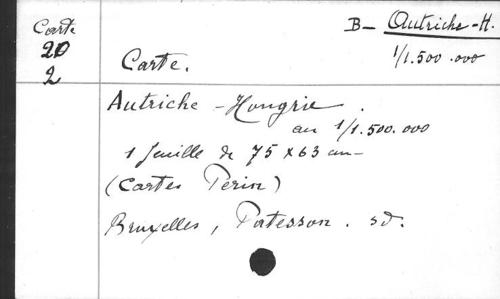 Carte
20
2
B- Autriche-H.
1/1.500.000
Carte.
Autriche-Hongrie.
au 1/1.500.000
1 feuille de 75 x 63 cm-
(Cartes Périn)
Bruxelles, Patesson. sd.